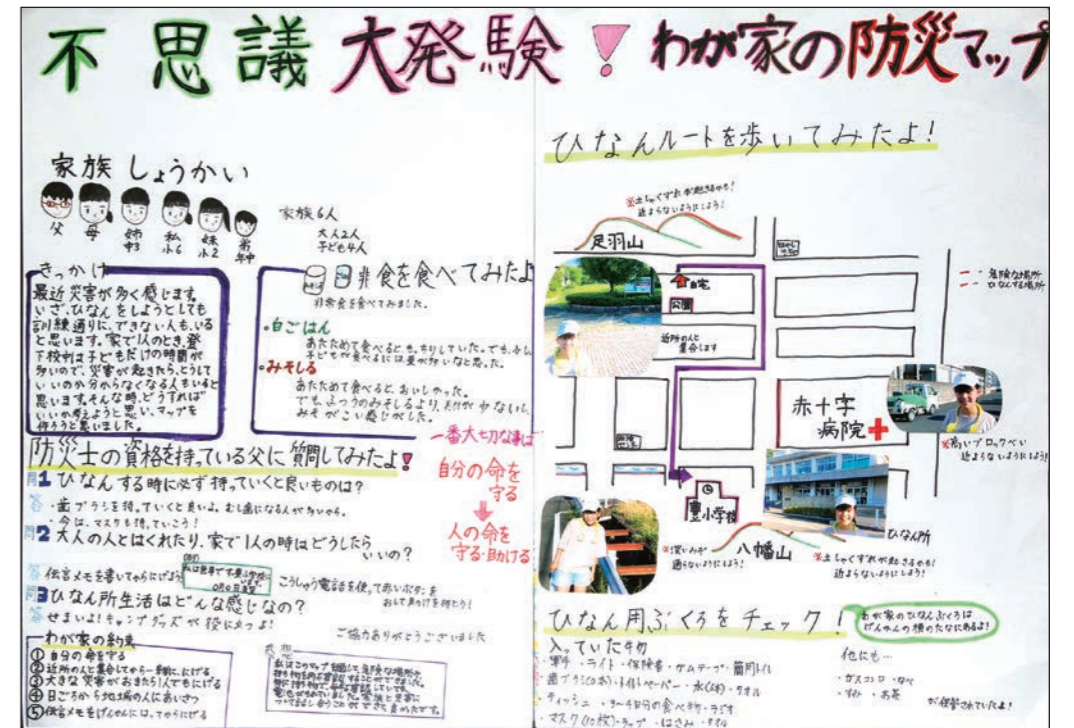 不思議大発験! わが家の防災マップ
家族しょうかい
父
母
姉
中3
私
小6
妹
小2
弟
年中
家族6人
大人2人
子ども4人
きっかけ
最近災害が多く感じます。
いざ、ひなんをしようとしても
訓練通りに、できない人も、いる
と思います。家で1人のとき、登
下校時は子どもだけの時間が
多いので、災害が起きたら、どうして
いいのか分からなくなる人もいると
思います。そんな時、どうすれば
いいか考えようと思い、マップを
作ろうと思いました。
非食を食べてみたよ
非常食を食べてみました。
・白ごはん
あたためて食べると、もっちりしていた。でも、少し
子どもが食べるには量が多いなと思った。
・みそしる
あたためて食べると、おいしかった。
でも、ふつうのみそしるより、具材が少ないし、
みそがこい感じがした。
防災士の資格を持っている父に質問してみたよ!
問1 ひなんする時に必ず持っていくと良いものは?
答 ・歯ブラシを持っていくと良いよ。むし歯になる人が多いから。
今は、マスクも持っていこう!
問2 大人の人とはぐれたり、家で1人の時はどうしたら
いいの?
答 伝言メモを書いてからにげよう
こうしゅう電話を使ってあいボタンを
おして助けを待とう!
問3 ひなん所生活はどんな感じなの?
答 せまいよ!キャンプグッズが役に立つよ!
一番大切な事は
自分の命を
守る
人の命を
守る・助ける
ご協力ありがとうございました
わが家の約束
① 自分の命を守る
② 近所の人と集合してから一緒に、にげる
③ 大きな災害がおきたら1人でもにげる
④ 日ごろから地域の人にあいさつ
⑤ 伝言メモをげんかんには、てからにげる
感想
ひなんルートを歩いてみたよ!
※土しゃくずれが起きるかも!
近よらないようにしよう!
足羽山
自宅
公園
近所の人と
集合します
ー・危険な場所
ー・ひなんする場所
赤十字
病院
※高いブロックべい
近よらないようにしよう!
豊小学校
ひなん所
八幡山
※深いみぞ
通らないようにしよう!
※土しゃくずれが起きるかも!
近よらないようにしよう!
ひなん用ぶくろをチェック!
わが家のひなんぶくろは
げんかんの横のたなにあるよ!
入っていた物
・軍手 ・ライト ・保険書 ・ガムテープ ・簡用トイレ
歯ブラシ ・トイレットペーパー ・水 ・タオル
ティッシュ ・3〜4日分の食べ物 ・ラジオ
・マスク(10枚) ・ラップ ・はさみ
他にも…
・ガスコンロ ・なべ
・お茶
が保管されていたよ!